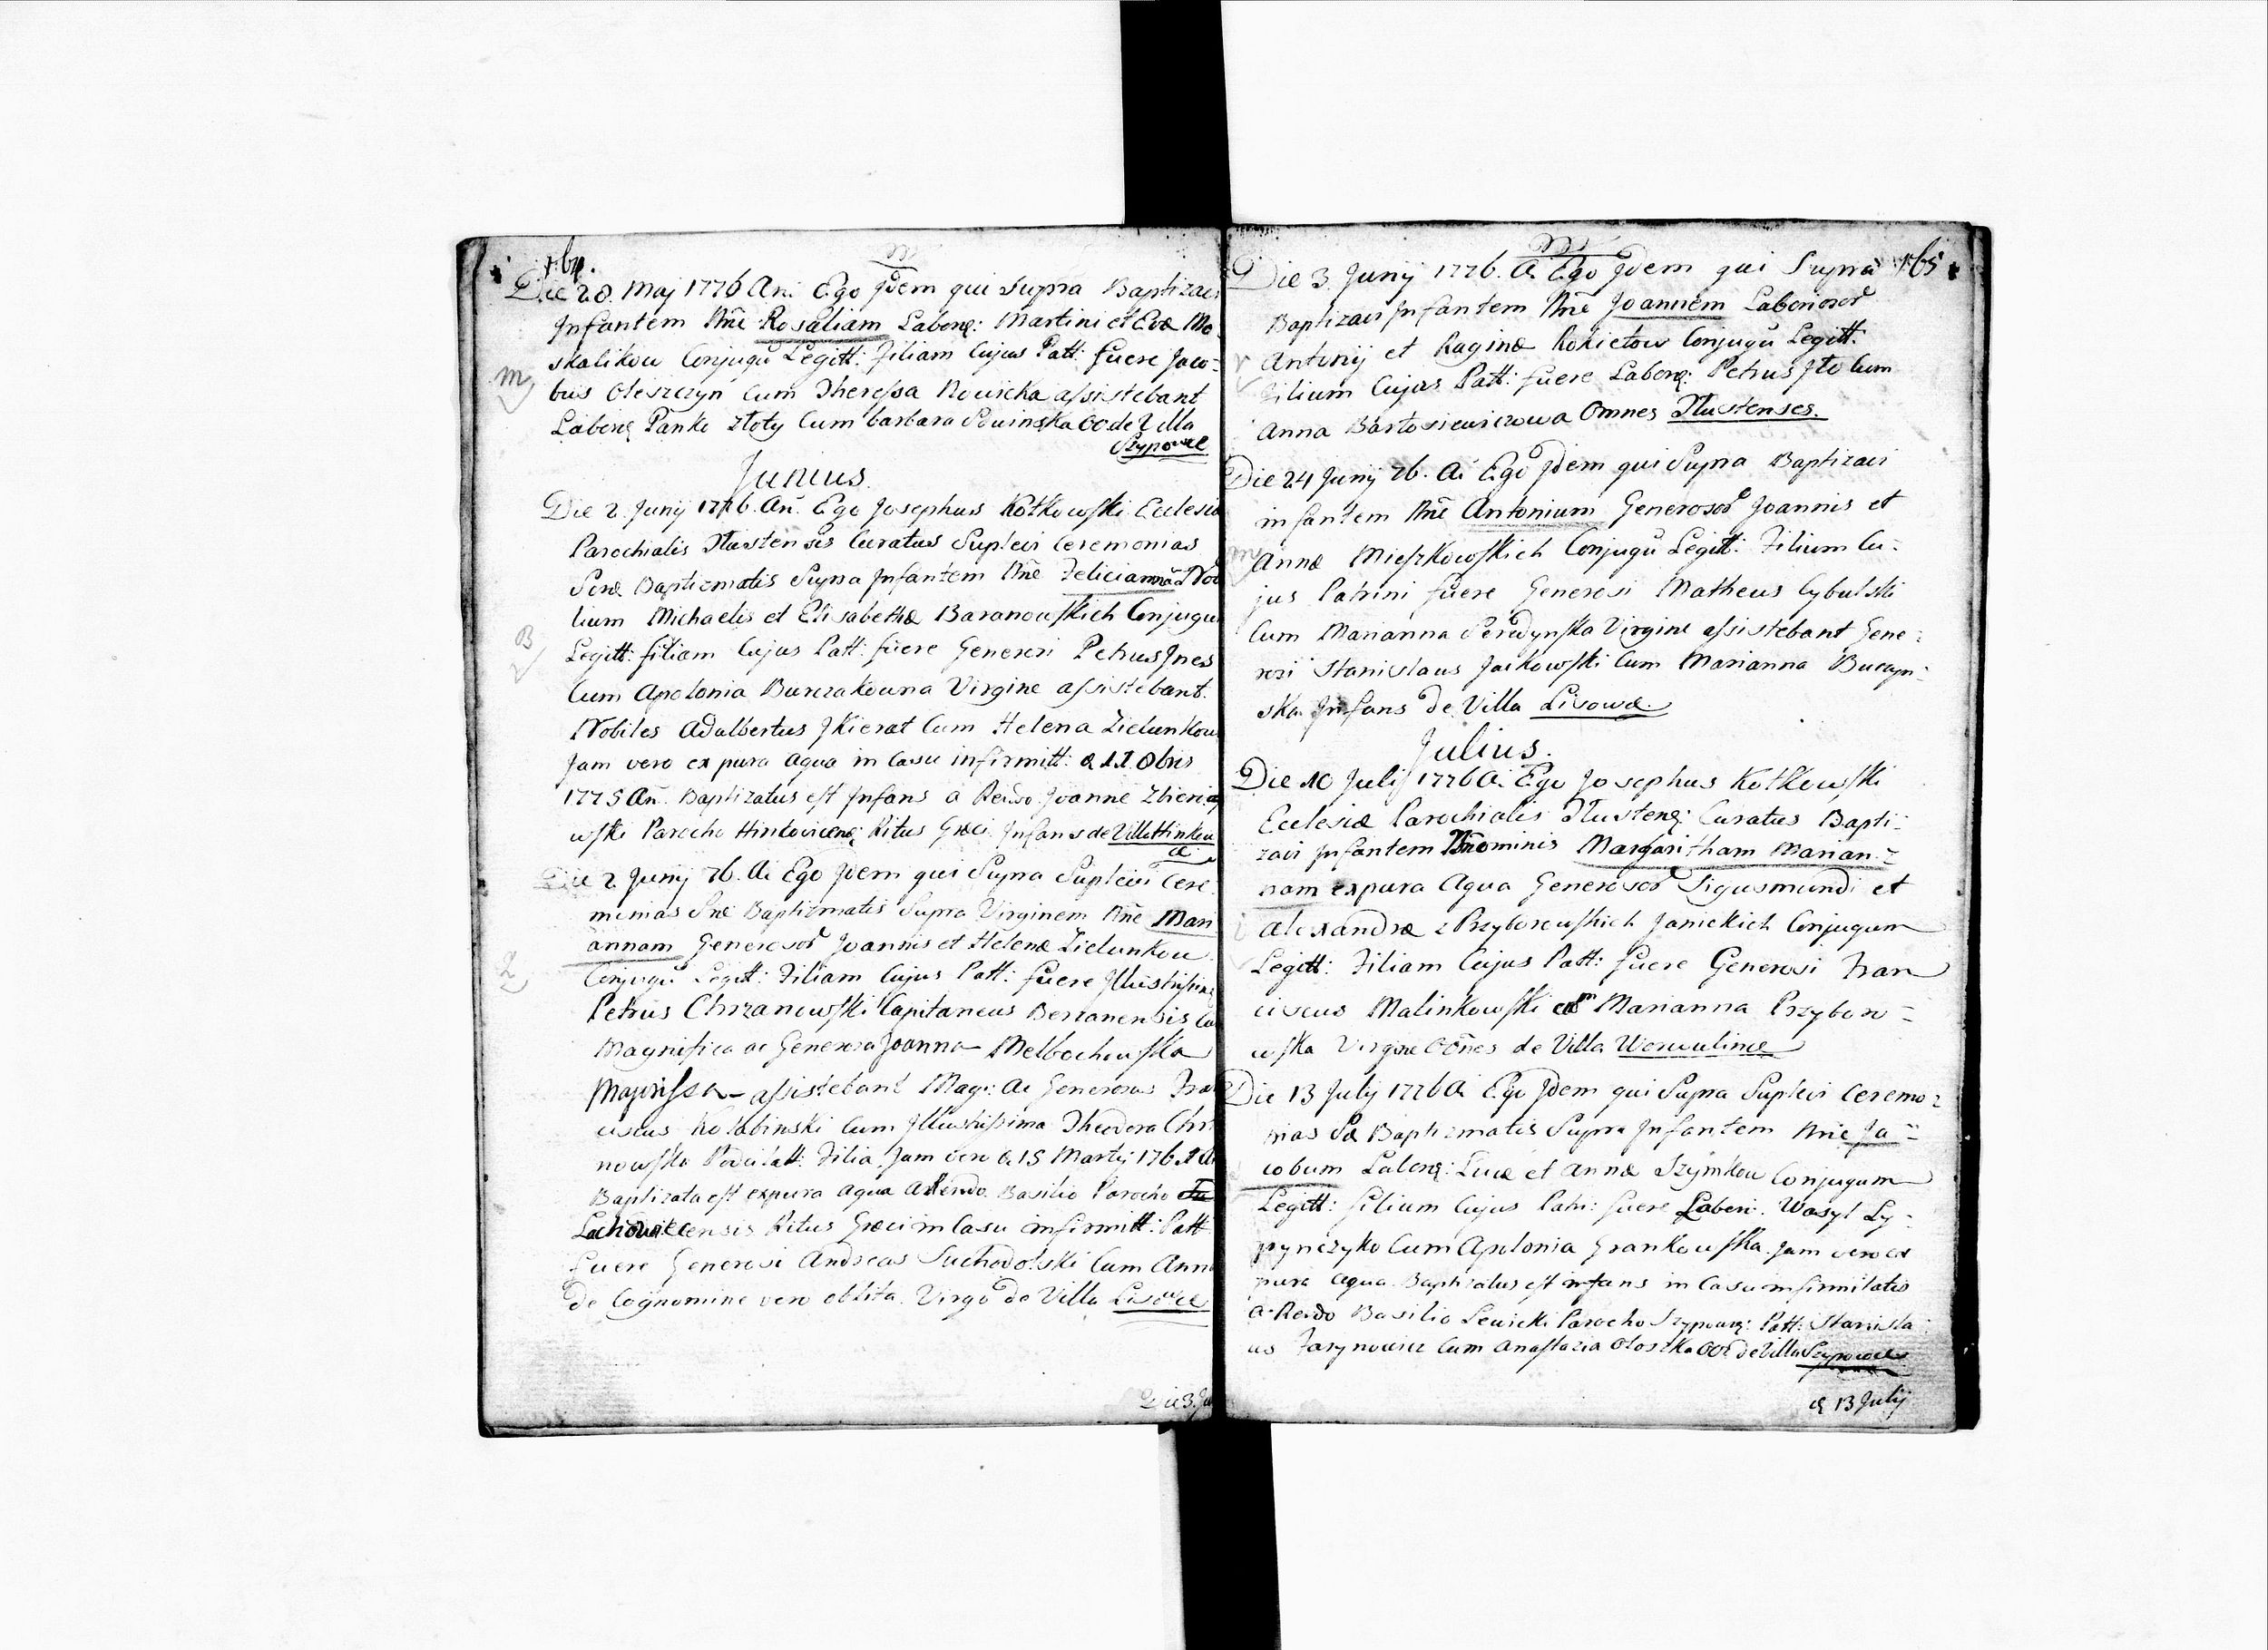 164.
Die 28. Maj 1776 An: Ego Jdem qui supra Baptizavi
Jnfantem Nne Rosaliam Laborq: Martini et Evæ Mo
skalikow Conjugũ Legitt: Filiam Cujus Patt: fuere Jaco-
bus Oleszczyn Cum Theressa Nowicka assistebant
Laborq Panko Złoty Cum barbara OO de Villa
Szypowce
Junius.
Die 2. Junij 1776. An. Ego Josephus Kotkowski Ecclesiæ
Parochialis Tlustensis Curatus Suplevi Ceremonias
Baptizmatis Supra Jnfantem Nne Feliciannã Nob
lium Michaelis et Elisabethæ Baranowskich Conjugu
Legitt: filiam Cujus Patt: fuere Generosi Petrus Jnes
Cum Apolonia Burczakowna Virgine assistebant.
Nobiles Adalbertus Cum Helena Zielunkow
Jam vero ex pura aqua in Casu infirmitt: a 11 Obris
1775 An. Baptizatus est Jnfans a Rendo Joanne
wski Parocho Hinkovicenq: Ritus Græci. Jnfans de Villa Hinkow
ce
Die 2 Junij 76. A. Ego Jdem qui Supra Suplevi Cere
monias Baptizmatis Supra Virginem Nne Mari
annam Generosor Joannis et Helenæ Zielunkow
Conjugũ Legitt: Filiam Cujus Patt: fuere Jllustrissim
Petrus Chrzanowski Capitaneus Cu
Magnifica ac Generosa Joanna Melbachowska
Majorissa assistebant Mag: ac Generosus Fran
ciscus Kołabinski Cum Jllustrissima Theodora Chrz
nowska Filia. Jam vero a 15 Martij 1761 A
Baptizata est ex pura aqua a Rendo Basilio Parocho
Ritus Græci in Casu infirmitt: Patt
fuere Generosi Andreas Suchodolski Cum Anna
de Cognomine vero oblita. Virgo de Villa Lisowce
Die 3. Ju
165
Die 3. Junij 1776. A. Ego Jdem qui Supra
Baptizavi Jnfantem Nne Joannem Laborosor
Antonij et Raginæ Rokietow Conjugũ Legitt:
Filium Cujus Patt: fuere Laborq: Petrus Jto Cum
Anna Bartosiewiczowa Omnes Tlustenses.
Die 24 Junij 76. A. Ego Jdem qui Supra Baptizavi
infantem Nne Antonium Generosor Joannis et
Annæ Mieszkowskich Conjugũ Legitt: Filium Cu-
jus Patrini fuere Generosi Matheus Cybulski
Cum Marianna Seredynska Virgine assistebant Gene-
rosi Stanislaus Jackowski Cum Marianna Buczyn-
ska. Jnfans de Villa Lisowce.
Julius.
Die 10 Julij 1776 A. Ego Josephus Kotkowski
Ecclesiæ Parochialis Tlustenq: Curatus Bapti-
zavi Jnfantem Nnominis Margaritham Marian-
nam ex pura Aqua Generosor Sigusmundi et
Alexandræ z Przyborowskich Janickich Conjugum
Legitt: Filiam Cujus Patt: fuere Generosi Fran
ciscus Malinkowski cum Marianna Przyboro-
wska Virgine OOnes de Villa Worwulince
Die 13 Julij 1776 A Ego Jdem qui Supra Suplevi Ceremo-
nias Sæ Baptizmatis Supra Jnfantem Nne Ja-
cobum Laborq: Lucæ et Annæ Szymkow Conjugum
Legitt: filium Cujus Patri: fuere Labori. Wasyl Ly-
pynczyko Cum Apolonia Grankowska. Jam vero ex
pura aqua Baptizatus est infans in Casu infirmitatis
a Rendo Basilio Lewicki Parocho Szypowq: Patt: Stanisla
us Jarynowicz Cum Anastazia Oloszka OOs de Villa Szypowce
a 13 Julij